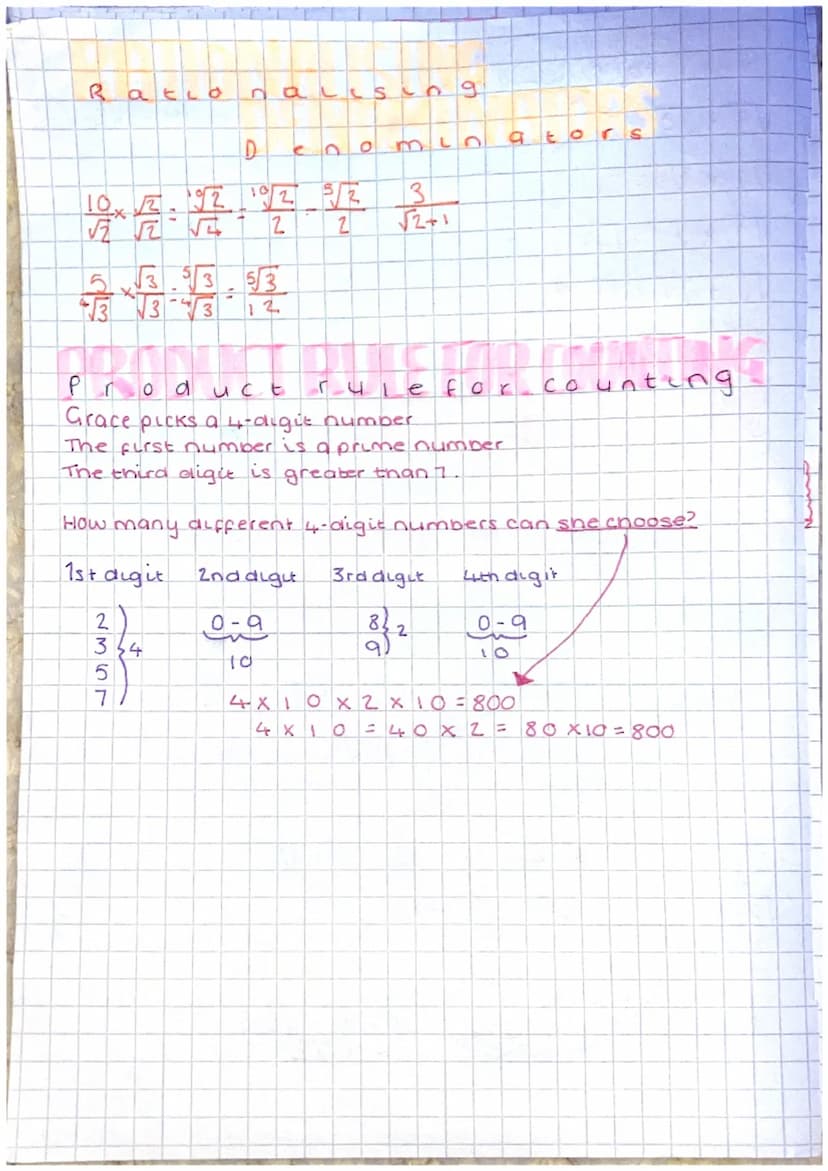 RATIONALISING
Rationalising
DENOMINATORS
Denominators
10/√2 × √2/√2 = 10√2/√4 = 10√2/2 = 5√2/2 3/√2+1
5/4√3 × √3/√3 = 5√3/4√3 = 5√3/12
PRODUCT RULE FOR COUNTING
Product rule for counting
Grace picks a 4-digit number
The first number is a prime number
The third digit is greater than 7.
How many different 4-digit numbers can she choose?
1st digit 2nd digit 3rd digit 4th digit
2 0-9 8 0-9
3 4 2
5 10 9 10
7 4 × 10 × 2 × 10 = 800
4 × 10 = 40 × 2 = 80 × 10 = 800